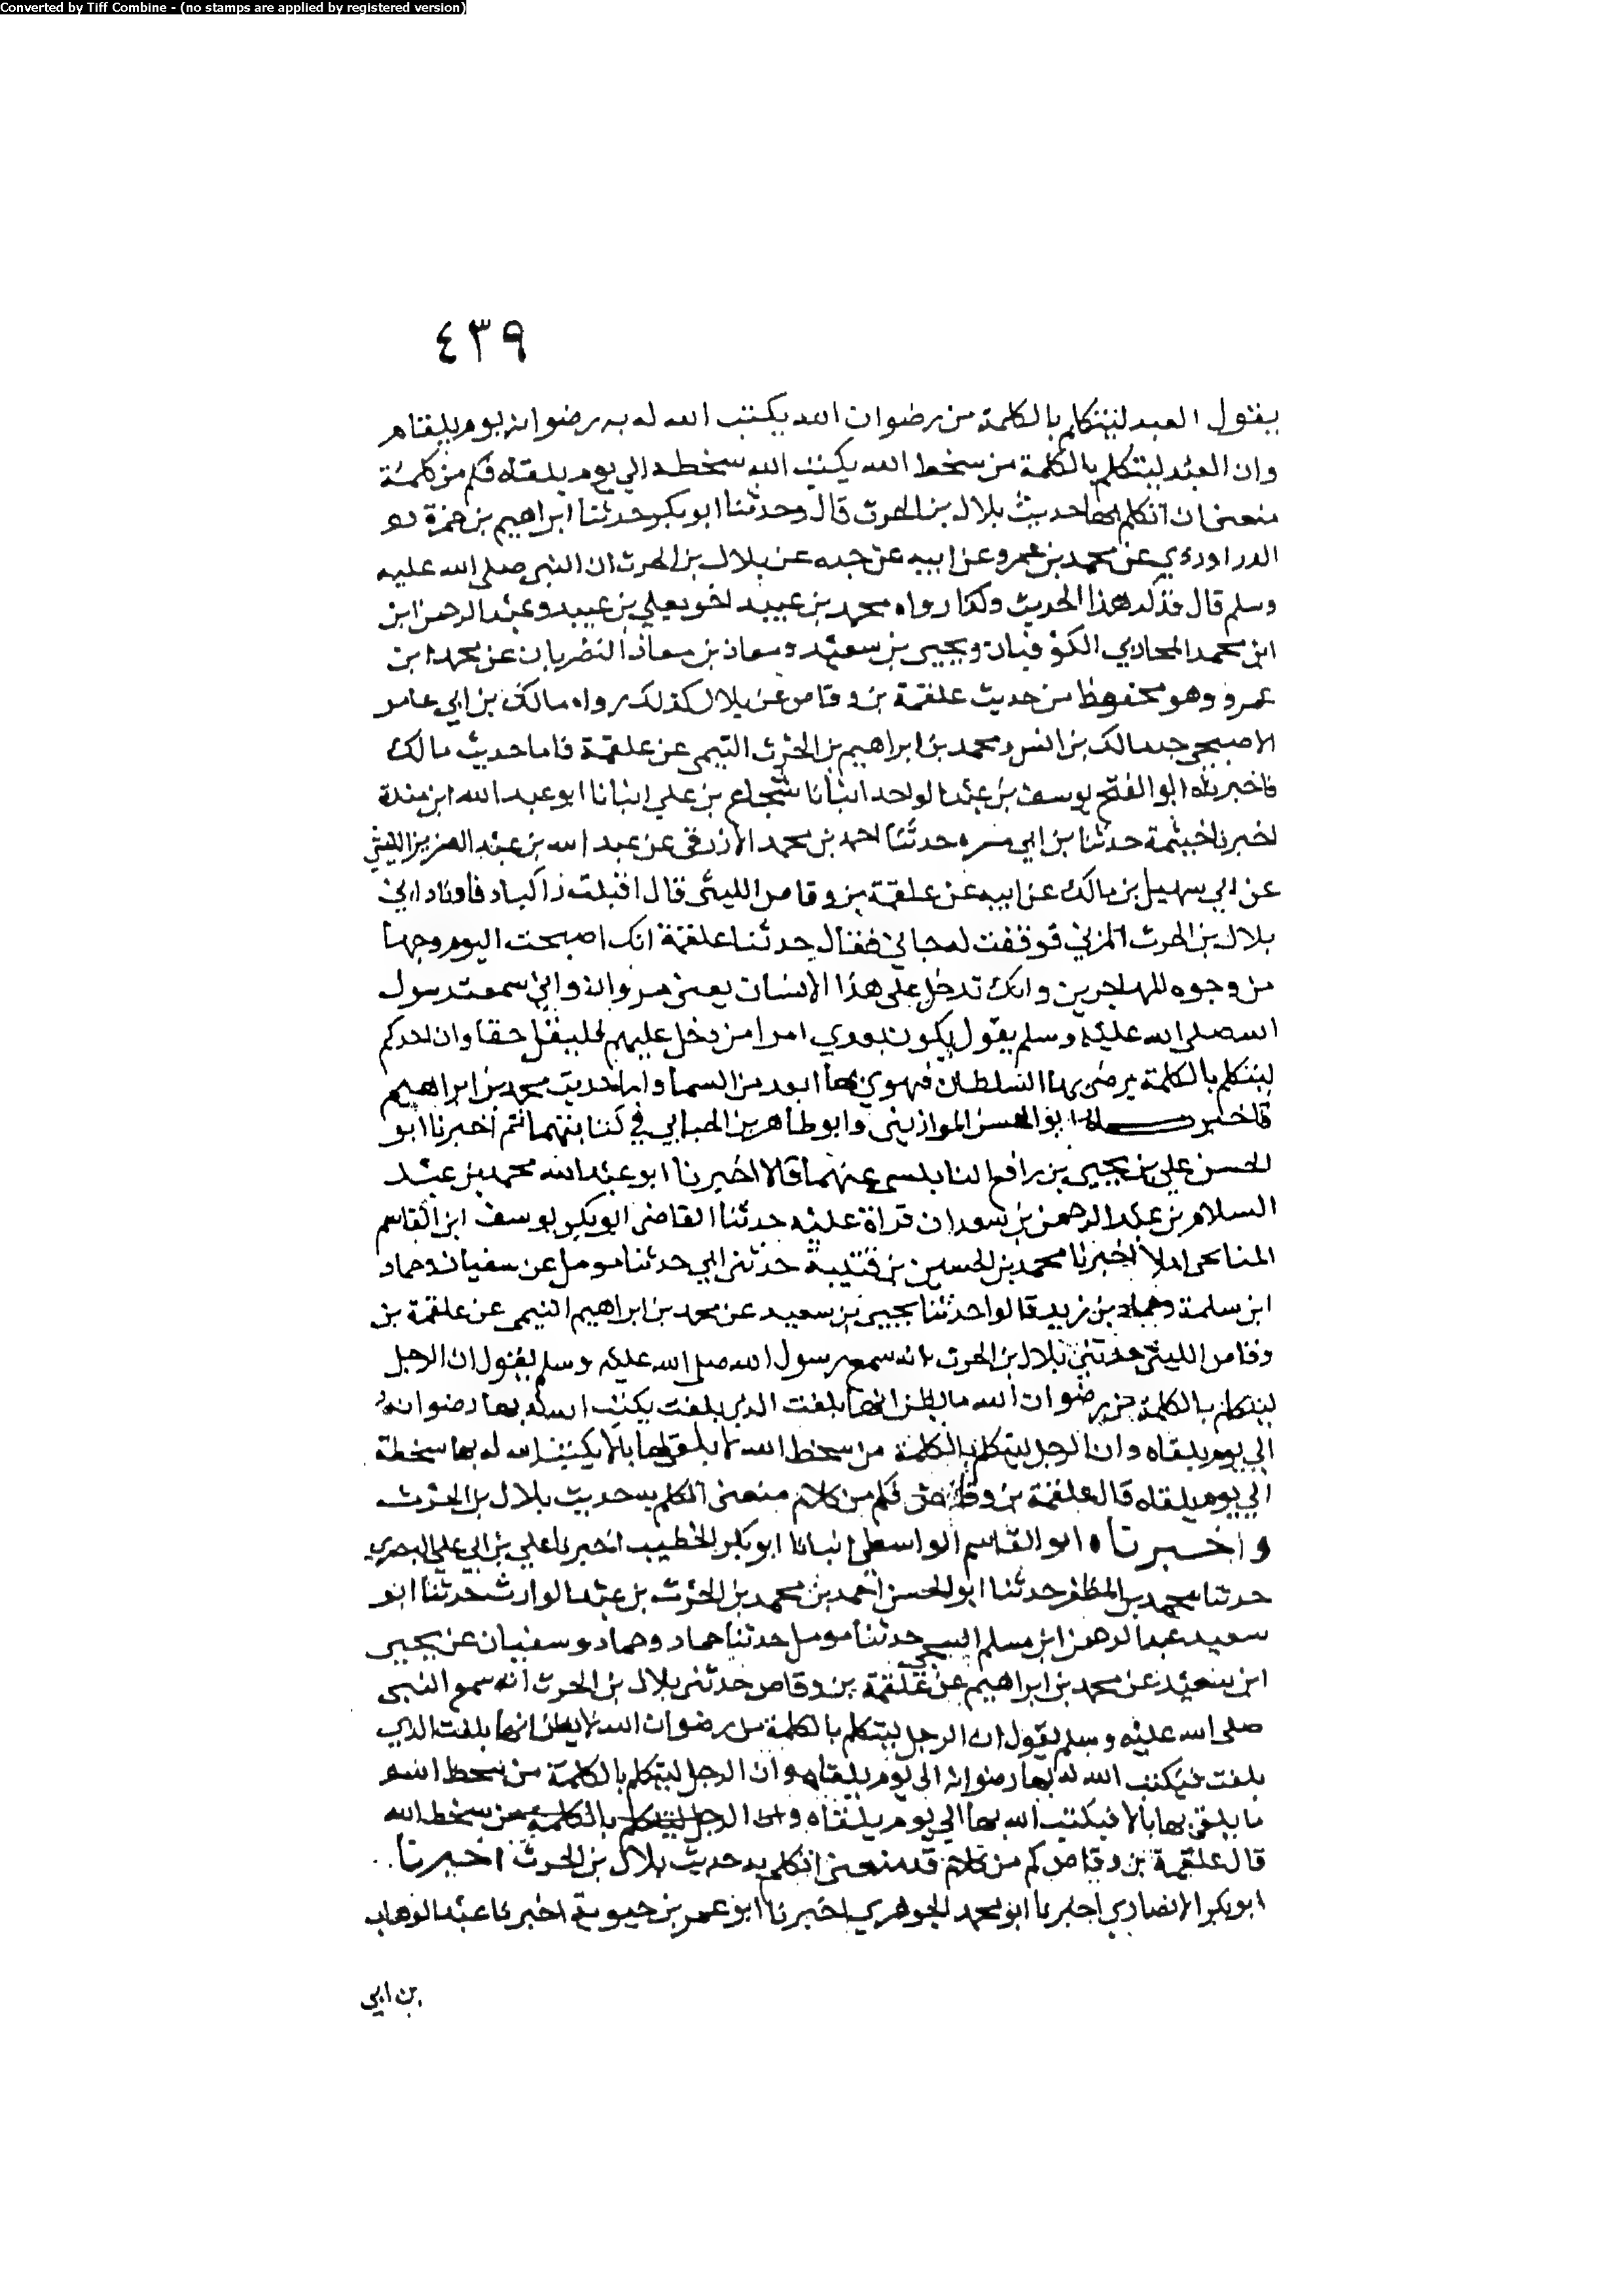 Converted by Tiff Combine - (no stamps are applied by registered version)
٤٣٩
يقول العبد ليتكلم بالكلمة من رضوان الله يكتب الله له به رضوانه يوم يلقاه
وان العبد ليتكلم بالكلمة من سخط الله يكتب الله سخطه الي يوم يلقاه فكم من كلمة
منعني ان اتكلم بها حديث بلال بن الحرث قال وحدثنا ابو بكر حدثنا ابراهيم بن حمزة
الدراوردي عن محمد بن عمرو عن ابيه عن جده عن بلال بن الحرث ان النبي صلى الله عليه
وسلم قال فذكر هذا الحديث وكذا رواه محمد بن عبيد اخو يعلي بن عبيد وعبد الرحمن ابن
ابن محمد المحاربي الكوفيان ويحيى بن سعيد ومعاذ بن معاذ النضريان عن محمد ابن
عمرو وهو محفوظ من حديث علقمة بن وقاص عن بلال كذلك رواه مالك بن ابي عامر
الاصبحي جد مالك بن انس ومحمد بن ابراهيم بن الحرث التيمي عن علقمة فاما حديث مالك
فاخبرناه ابو الفتح يوسف بن عبد الواحد انبانا شجاع بن علي انبانا ابو عبد الله ابن مندة
اخبرنا خيثمة حدثنا بن ابي مسره حدثنا احمد بن محمد الازرقي عن عبد الله بن عبد العزيز الليثي
عن ابي سهيل بن مالك عن ابيه عن علقمة بن وقاص الليثي قال اقبلت راكبا فناداني
بلال بن الحرث المزني فوقفت له حتى جاني فقال حدثنا علقمة انك اصبحت اليوم وجها
من وجوه المهاجرين وانك تدخل على هذا الانسان يعني مروان واني سمعت رسول
الله صلى الله عليه وسلم يقول يكون بعدي امرا من دخل عليهم فليقل حقا وان احدكم
ليتكلم بالكلمة يرضى بها السلطان فيهوي بها ابعد من السما واما حديث محمد بن ابراهيم
فاخبرناه ابو الحسن الموازيني وابو طاهر بن الحبابي في كتابيهما ثم اخبرنا ابو
الحسن علي بن يحيى بن رافع النابلسي عنهما قالا اخبرنا ابو عبد الله محمد بن عبد
السلام بن عبد الرحمن بن سعدان قراة عليه حدثنا القاضي ابو بكر يوسف ابن القاسم
املا اخبرنا محمد بن الحسين بن قتيبة حدثني ابي حدثنا مومل عن سفيان وحماد
ابن سلمة وحماد بن زيد قالوا حدثنا يحيى بن سعيد عن محمد بن ابراهيم التيمي عن علقمة بن
وقاص الليثي حدثني بلال بن الحرث انه سمع رسول الله صلى الله عليه وسلم يقول ان الرجل
ليتكلم بالكلمة من رضوان الله ما يظن انها بلغت الذي بلغت يكتب الله له بها رضوانه
الي يوم يلقاه وان الرجل ليتكلم بالكلمة من سخط الله لا يلقي لها بالا يكتب الله له بها سخطه
الي يوم يلقاه قال علقمة بن وقاص فكم من كلام منعني اتكلم به حديث بلال بن الحرث
واخبرناه ابو القاسم الواسطي انبانا ابو بكر الخطيب اخبرنا علي بن ابي علي البصري
حدثنا محمد بن المظفر حدثنا ابو الحسن احمد بن محمد بن الحرث بن عبد الوارث حدثنا ابو
سعيد عبد الرحمن ابن مسلم حدثنا مومل حدثنا حماد وحماد وسفيان عن يحيى
ابن سعيد عن محمد بن ابراهيم عن علقمة بن وقاص حدثني بلال بن الحرث انه سمع النبي
صلى الله عليه وسلم يقول ان الرجل ليتكلم بالكلمة من رضوان الله لا يظن انها بلغت الذي
بلغت فيكتب الله له بها رضوانه الى يوم يلقاه وان الرجل ليتكلم بالكلمة من سخط الله
ما يلقي بها بالا فيكتب الله بها الي يوم يلقاه وان الرجل ليتكلم بالكلمة من سخط الله
قال علقمة بن وقاص كم من كلام قد منعني اتكلم به حديث بلال بن الحرث اخبرنا
ابو بكر الانصاري اخبرنا ابو محمد الجوهري اخبرنا ابو عمر بن حيوية اخبرنا عبد الوهاب
بن ابي